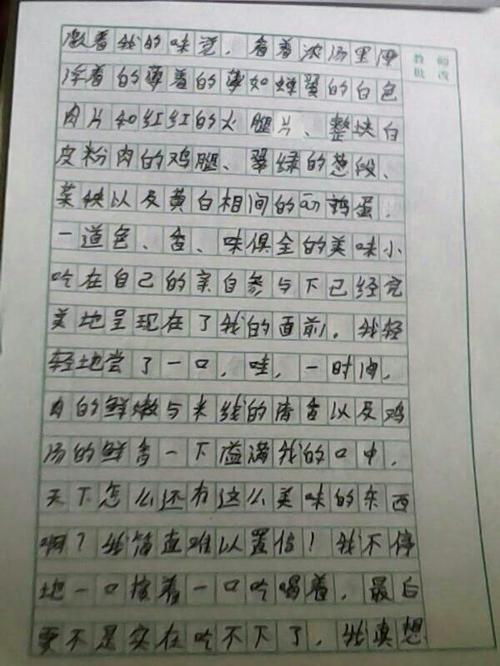 激着我的味觉。看着浓汤里漂
浮着的薄着的薄如蝉翼的白色
肉片和红红的火腿片、整块白
皮粉肉的鸡腿、翠绿的葱段、
菜块以及黄白相间的鹌鹑蛋，
一道色、香、味俱全的美味小
吃在自己的亲自参与下已经完
美地呈现在了我的面前。我轻
轻地尝了一口，哇，一时间，
肉的鲜嫩与米线的清香以及鸡
汤的鲜香一下溢满我的口中，
天下怎么还有这么美味的东西
啊？我简直难以置信！我不停
地一口接着一口吃喝着，最后
要不是实在吃不下了，我真想
教师
批改